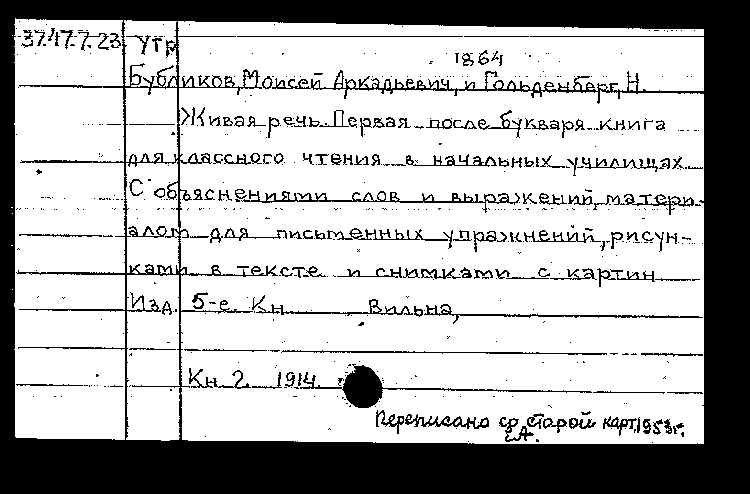 37.47.7.23 Утр
1864
Бубликов, Моисей Аркадьевич, и Гольденберг, Н.
Живая речь. Первая после букваря книга
для классного чтения в начальных училищах.
С объяснениями слов и выражений, матери-
алом для письменных упражнений, рисун-
ками в тексте и снимками с картин
Изд. 5-е. Кн. Вильна,
Кн 2. 1914.
Переписано со старой карт. 1953г.
ЕА.